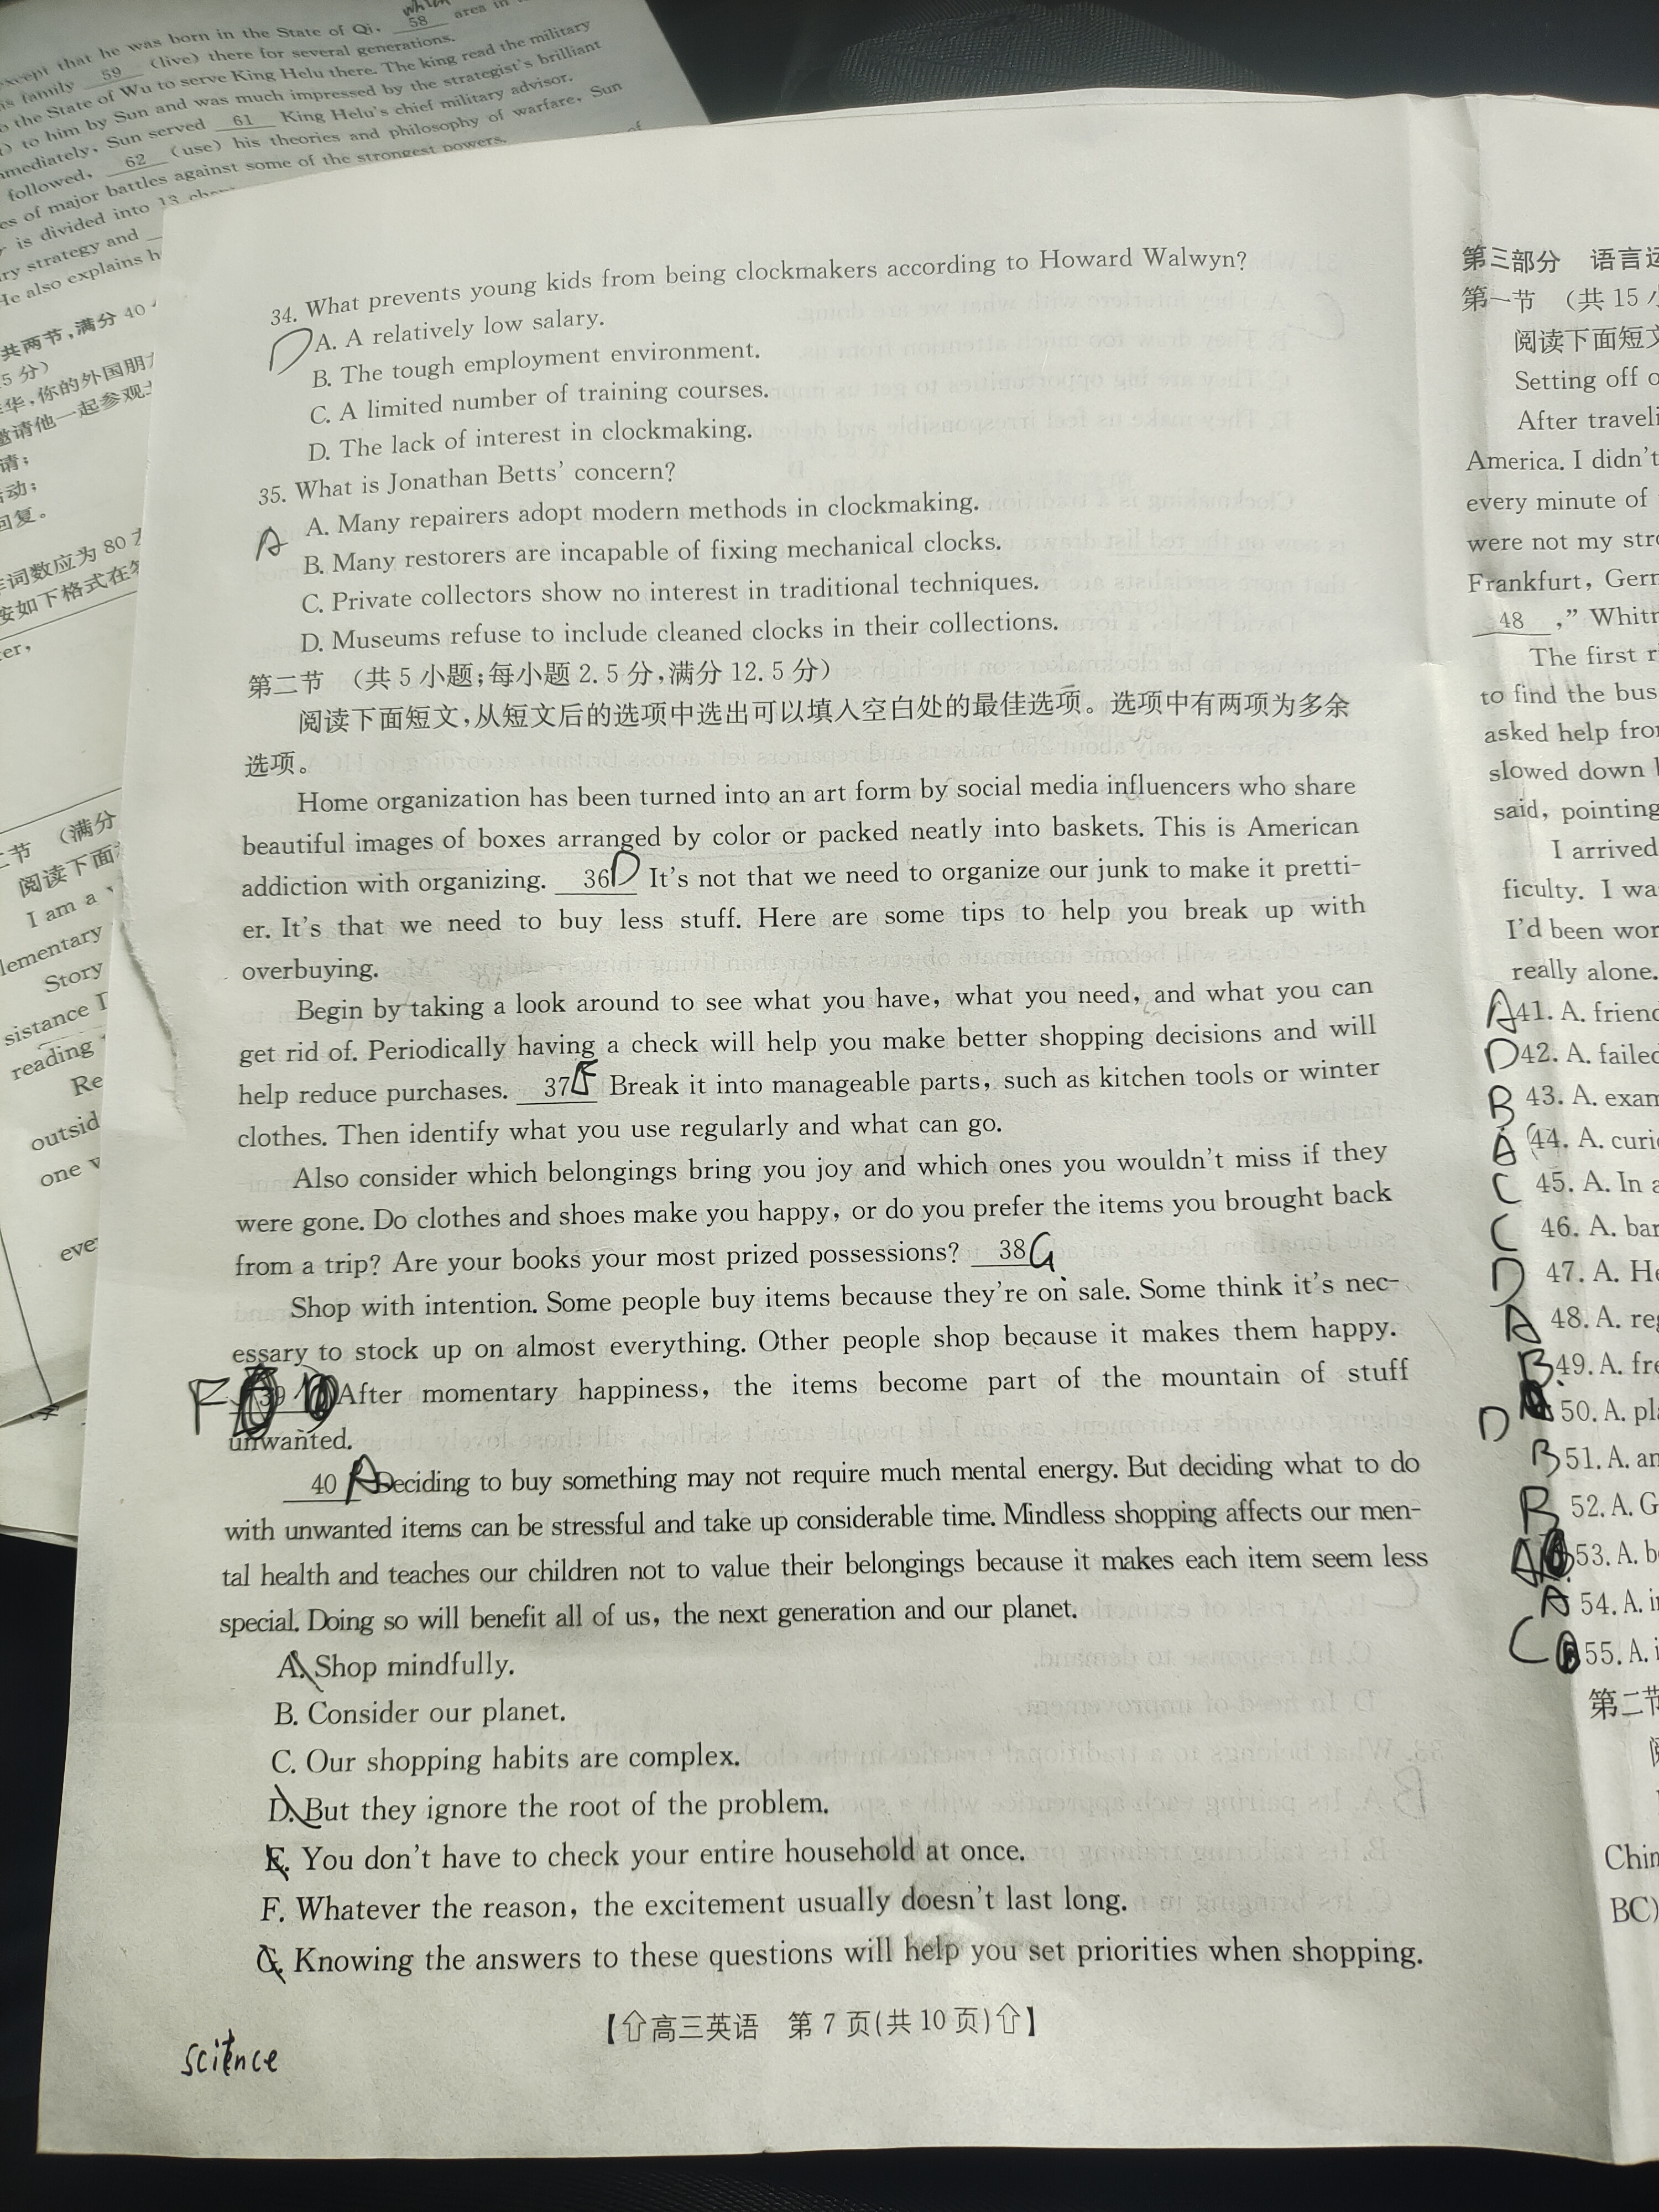 except that he was born in the State of Qi, which 58 area in
is family 59 (live) there for several generations.
o the State of Wu to serve King Helu there. The king read the military
) to him by Sun and was much impressed by the strategist's brilliant
mmediately, Sun served 61 King Helu's chief military advisor.
followed, 62 (use) his theories and philosophy of warfare, Sun
es of major battles against some of the strongest powers.
is divided into 13
ry strategy and
He also explains h
共两节,满分 40
5 分)
华,你的外国朋
邀请他一起参观
请;
活动;
回复。
词数应为 80
按如下格式在答
er,
节 (满分
阅读下面
I am a
lementary
Story
sistance I
reading
Re
outsid
one
eve
34. What prevents young kids from being clockmakers according to Howard Walwyn?
D A. A relatively low salary.
B. The tough employment environment.
C. A limited number of training courses.
D. The lack of interest in clockmaking.
35. What is Jonathan Betts' concern?
A A. Many repairers adopt modern methods in clockmaking.
B. Many restorers are incapable of fixing mechanical clocks.
C. Private collectors show no interest in traditional techniques.
D. Museums refuse to include cleaned clocks in their collections.
第二节 (共 5 小题;每小题 2.5 分,满分 12.5 分)
阅读下面短文,从短文后的选项中选出可以填入空白处的最佳选项。选项中有两项为多余
选项。
Home organization has been turned into an art form by social media influencers who share
beautiful images of boxes arranged by color or packed neatly into baskets. This is American
addiction with organizing. 36 D It's not that we need to organize our junk to make it pretti-
er. It's that we need to buy less stuff. Here are some tips to help you break up with
overbuying.
Begin by taking a look around to see what you have, what you need, and what you can
get rid of. Periodically having a check will help you make better shopping decisions and will
help reduce purchases. 37 E Break it into manageable parts, such as kitchen tools or winter
clothes. Then identify what you use regularly and what can go.
Also consider which belongings bring you joy and which ones you wouldn't miss if they
were gone. Do clothes and shoes make you happy, or do you prefer the items you brought back
from a trip? Are your books your most prized possessions? 38 G
Shop with intention. Some people buy items because they're on sale. Some think it's nec-
essary to stock up on almost everything. Other people shop because it makes them happy.
F 39 After momentary happiness, the items become part of the mountain of stuff
unwanted.
40 A Deciding to buy something may not require much mental energy. But deciding what to do
with unwanted items can be stressful and take up considerable time. Mindless shopping affects our men-
tal health and teaches our children not to value their belongings because it makes each item seem less
special. Doing so will benefit all of us, the next generation and our planet.
A. Shop mindfully.
B. Consider our planet.
C. Our shopping habits are complex.
D. But they ignore the root of the problem.
E. You don't have to check your entire household at once.
F. Whatever the reason, the excitement usually doesn't last long.
G. Knowing the answers to these questions will help you set priorities when shopping.
【⇧高三英语 第 7 页(共 10 页)⇧】
science
第三部分 语言运
第一节 (共 15 小
阅读下面短文
Setting off o
After traveli
America. I didn't
every minute of
were not my stro
Frankfurt, Gern
48 ," Whitn
The first r
to find the bus
asked help fro
slowed down
said, pointing
I arrived
ficulty. I wa
I'd been wor
really alone.
A 41. A. frien
D 42. A. failed
B 43. A. exam
A 44. A. curi
C 45. A. In a
C 46. A. bar
D 47. A. He
A 48. A. re
B 49. A. fre
D 50. A. pla
B 51. A. an
B 52. A. G
A 53. A. b
A 54. A. i
C 55. A. i
第二节
Chin
BC)